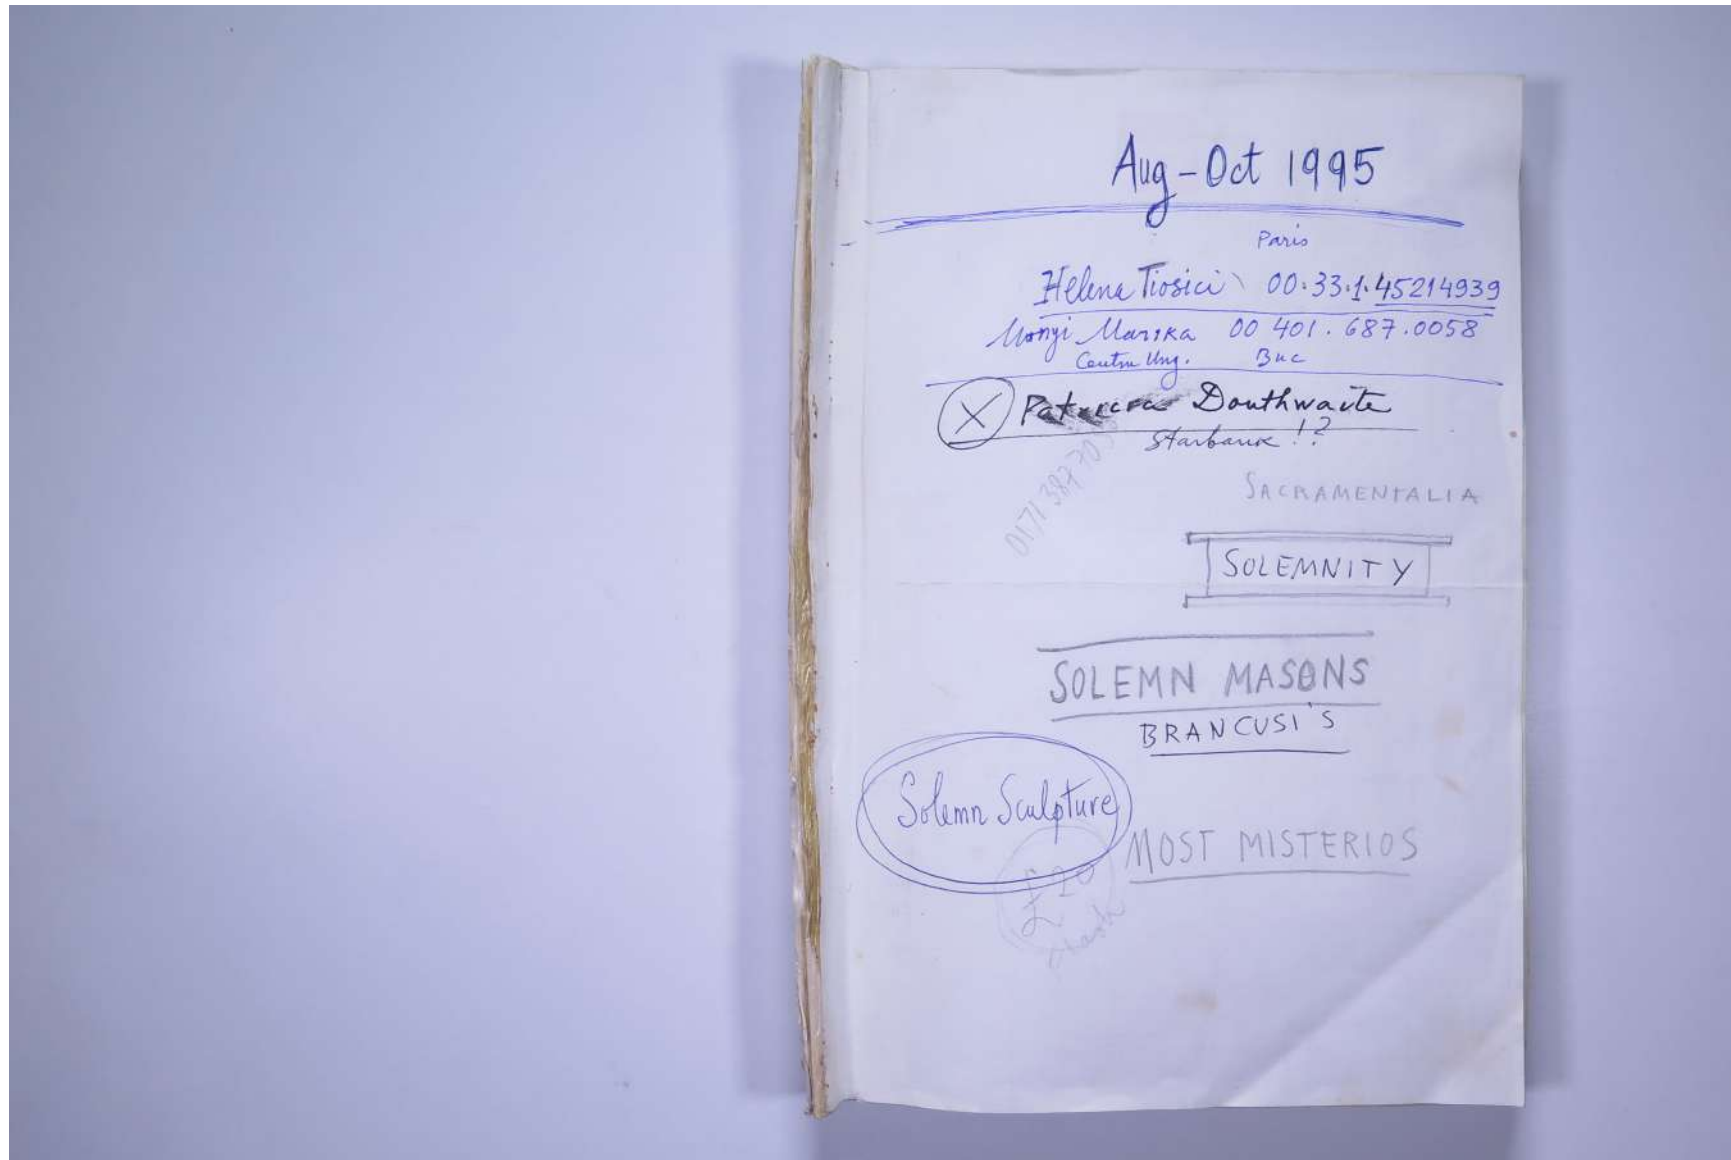 Aug - Oct 1995
Paris
Helena Tiosici 00.33.1.45214939
Monyi Marika 00 401.687.0058
Centru Ung. Buc
X Patricia Douthwaite
!?
0171 387 70
SACRAMENTALIA
SOLEMNITY
SOLEMN MASONS
BRANCUSI'S
Solemn Sculpture
MOST MISTERIOS
£20